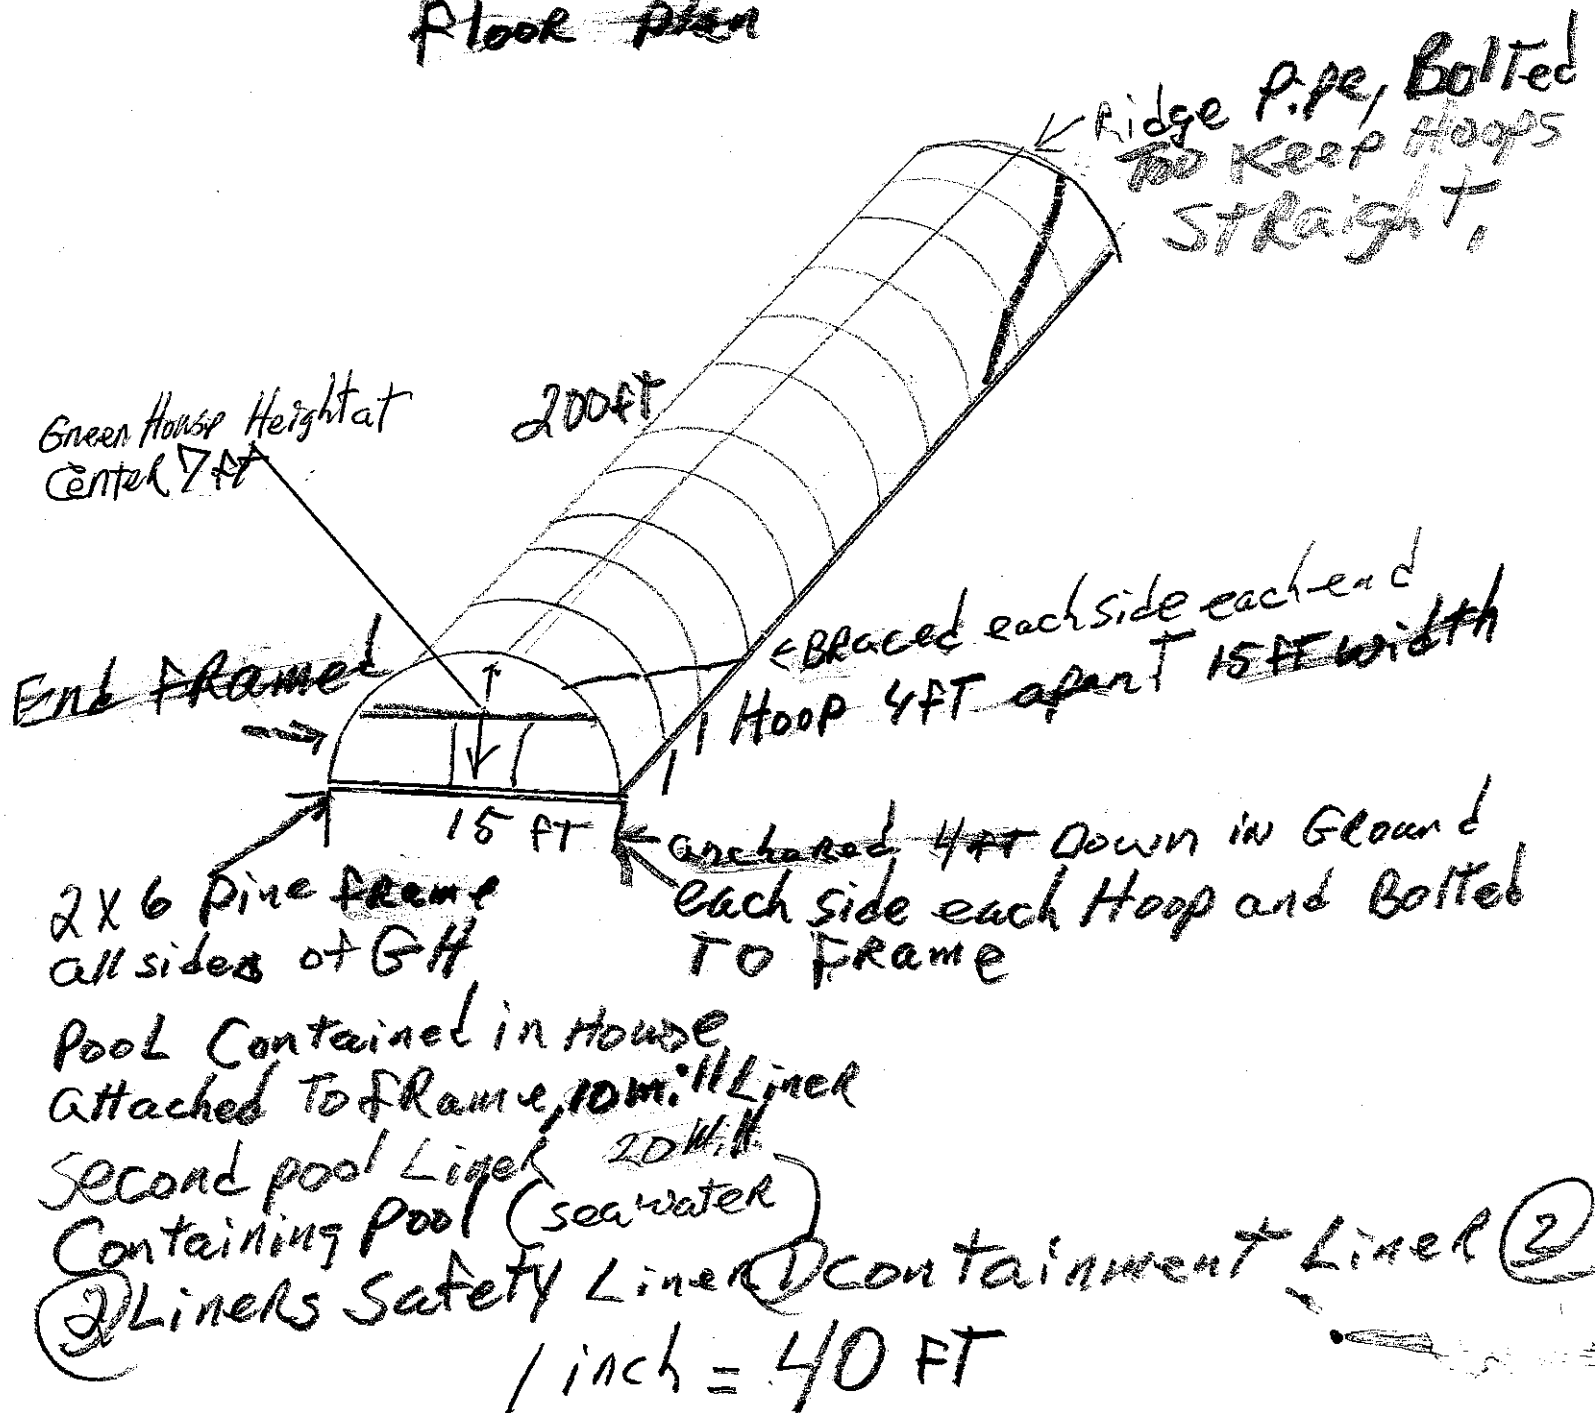 Floor plan
Ridge Pipe, Bolted
Too Keep Hoops
Straight.
200 ft
Green House Height at
Center 7 ft
End framed
Braced each side each end
Hoop 4 FT apart 15 FT width
15 FT
anchored 4 FT Down in Ground
each side each Hoop and Bolted
To Frame
2 x 6 pine frame
all sides of GH
Pool Contained in House
attached To frame, 10 mill Liner
Second pool Liner 20 Mill
Containing Pool (seawater)
2 Liners Safety Liner 1 containment Liner 2
1 inch = 40 FT